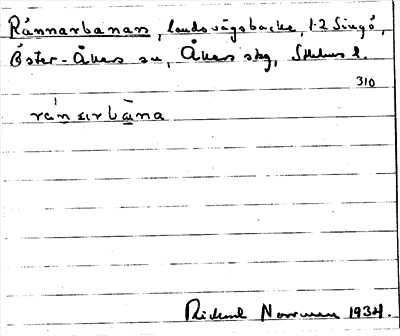 Rånnarbanan, landsvägsbacke, 1.2 Singö,
Öster-Åkers sn, Åkers skg, Sthlms l.
310
rånarbàna
Rickard Norrman 1934.